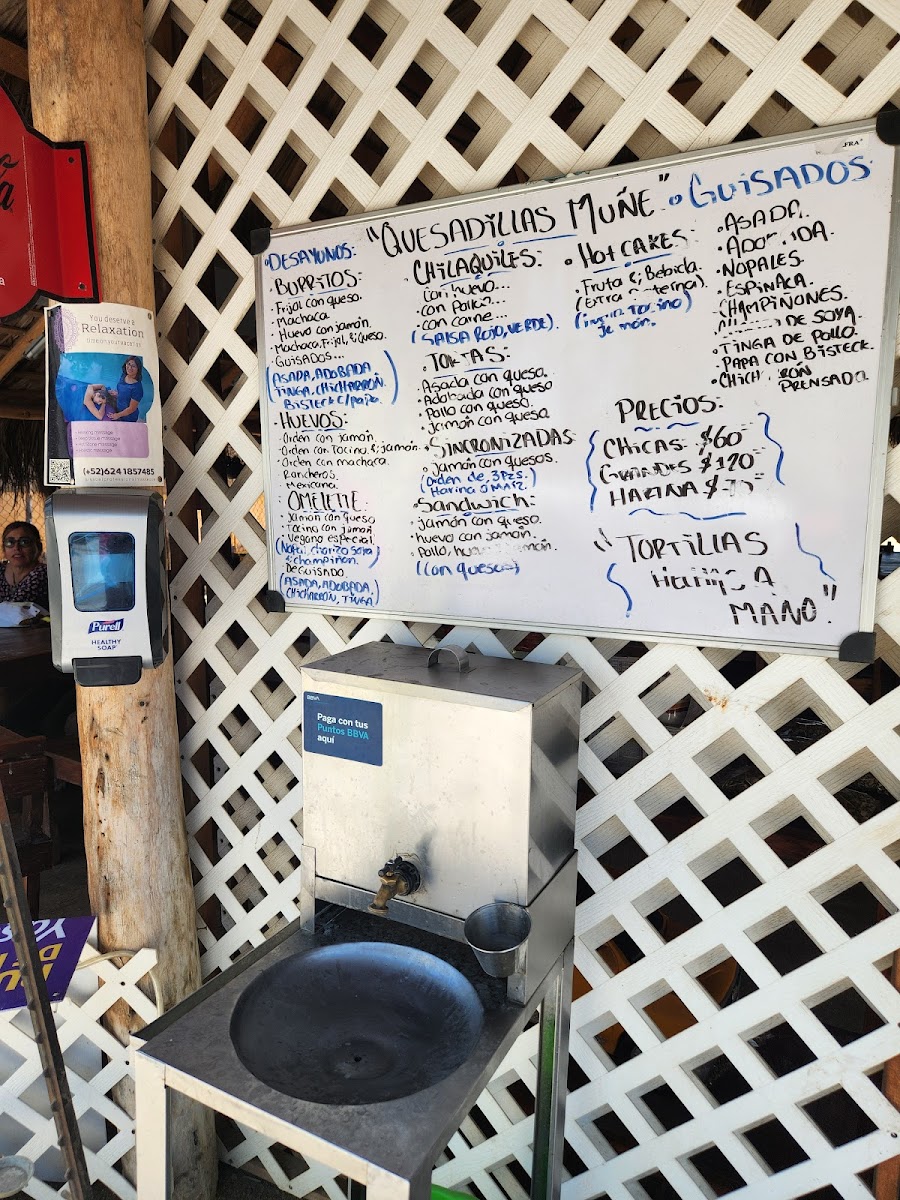 "QUESADILLAS MUÑE"
• DESAYUNOS:
• BURRITOS:
• Frijol con queso.
• Machaca.
• Huevo con jamón.
• Machaca, Frijol, & Queso.
• GUISADOS...
(ASADA, ADOBADA
TINGA, CHICHARRÓN.
BISTECK C/papa.)
• HUEVOS:
• Orden con jamón.
• Orden con Tocino & jamón.
• Orden con machaca.
• Rancheros.
• Mexicana.
• OMELETTE:
• Jamón con queso
• Tocino con jamón
• Vegano especial.
& champiñon.)
• DE GUISADO.
(ASADA, ADOBADA,
CHICHARRÓN, TINGA)
• CHILAQUILES:
• Con huevo...
• con Pollo...
• con carne...
(SALSA ROJO, VERDE).
• TORTAS:
• Asada con queso.
• Adobada con queso
• Pollo con queso.
• Jamón con queso
• SINCRONIZADAS:
• Jamón con quesos.
(Orden de 3 Pzs.
Harina o maiz.)
• Sandwich:
• jamón con queso.
• huevo con jamón.
• Pollo,
((con quesos)
• HOT CAKES:
• Fruta & Bebida.
(Extra
Tocino)
Jamón.
• GUISADOS
• ASADA.
• NOPALES.
• ESPINACA.
• CHAMPIÑONES.
DE SOYA.
• TINGA DE POLLO.
• PAPA CON BISTECK.
PRENSADO
PRECIOS:
CHICAS: $60
GRANDES $120
HARINA
"TORTILLAS
A
MANO"
FRA
You deserve a
Relaxation
(+52)624 1857485
Purell
HEALTHY
SOAP
BBVA
Paga con tus
Puntos BBVA
aquí